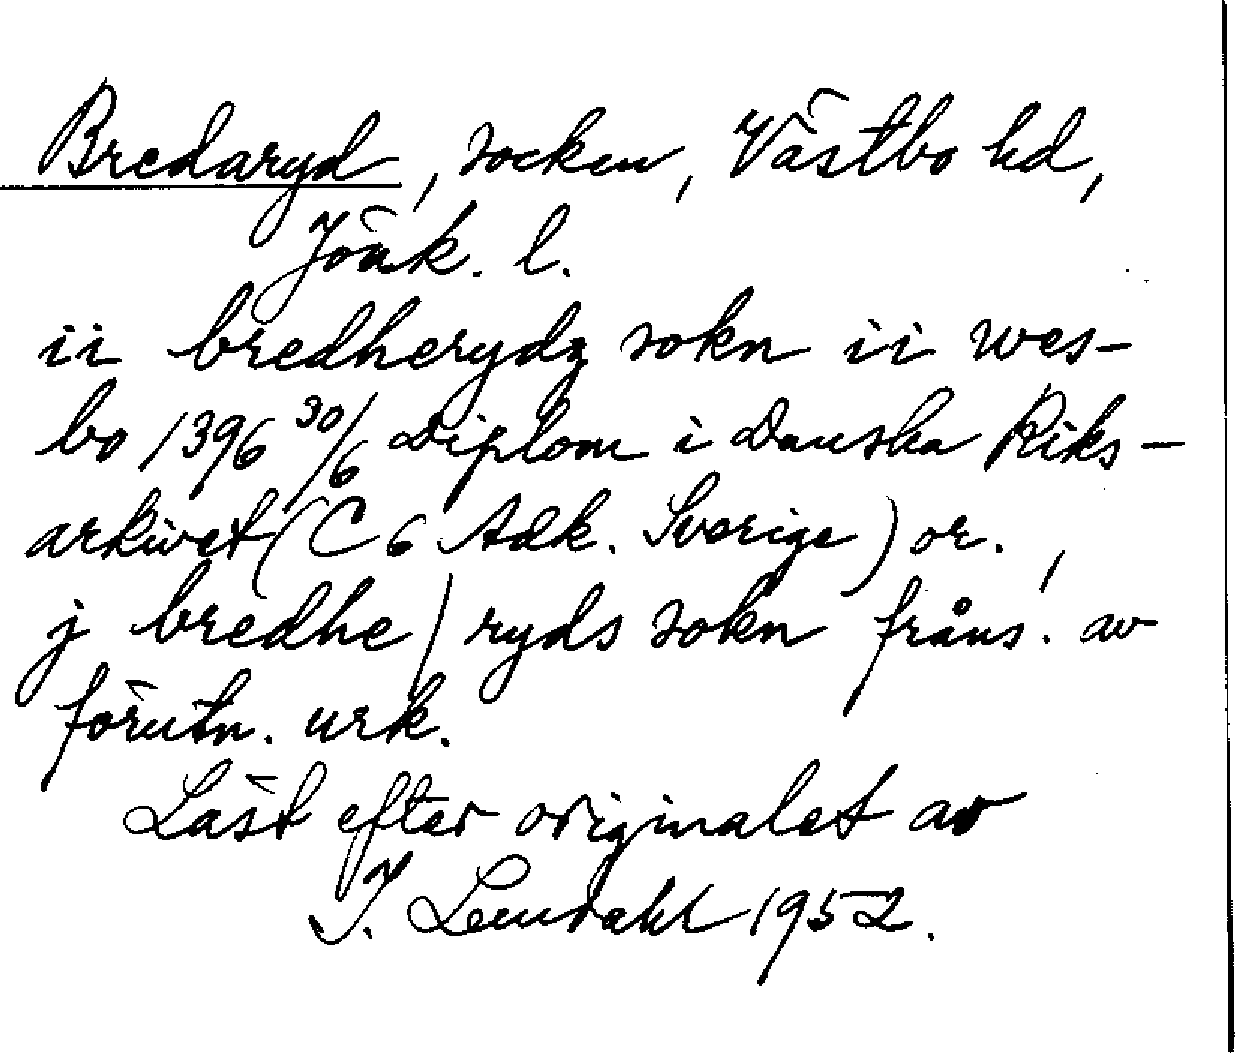 Bredaryd, socken, Västbo hd,
Jönk. l.
ii bredherydz sokn ii wes-
bo 1396 30/6 Diplom i Danska Riks-
arkivet (C 6 Adk. Sverige) or.,
j bredhe/ryds sokn fråns. av
förutn. urk.
Läst efter originalet av
I. Lendahl 1952.